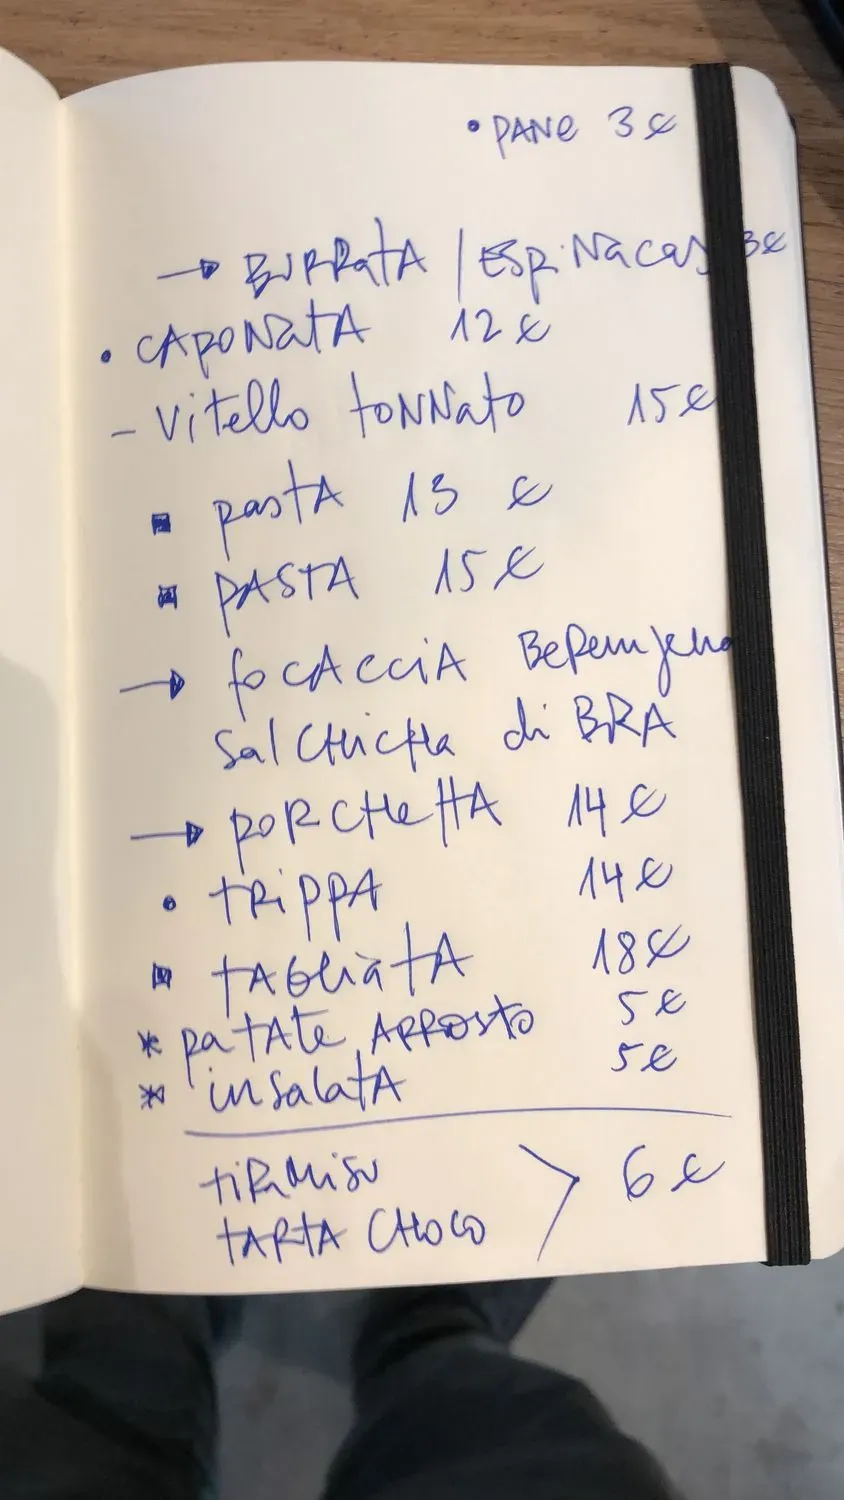 • PANE 3 €
→ BURRATA / ESPINACAS 3€
• CAPONATA 12 €
- Vitello tonnato 15 €
▪ pasta 13 €
▪ PASTA 15 €
→ foCACCiA BeRenjena
SalCHiCHa di BRA
→ PORCHettA 14 €
• tRiPPA 14 €
▪ tAGLiAtA 18 €
* patAte ARROSto 5 €
* insalatA 5 €
tiRAMiSU
tARtA CHOCO > 6 €